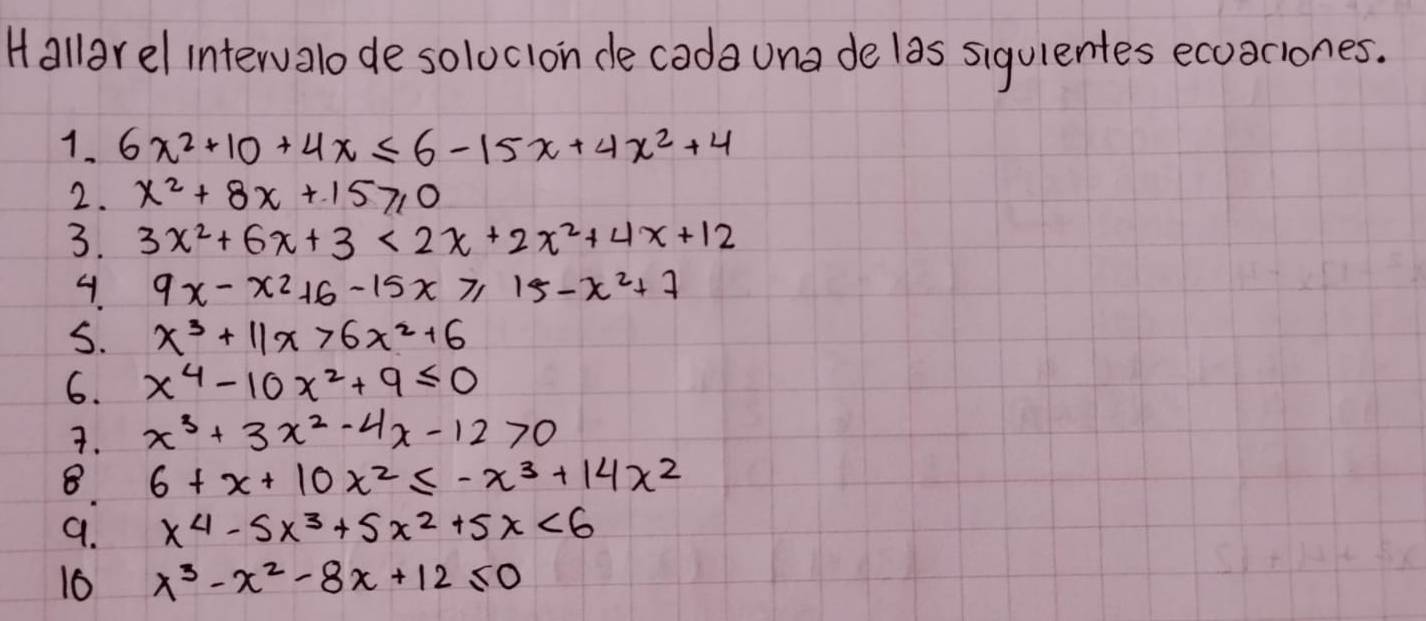 Hallar el intervalo de solución de cada una de las siguientes ecuaciones.
1. 6x² + 10 + 4x ≤ 6 - 15x + 4x² + 4
2. x² + 8x + 15 ≥ 0
3. 3x² + 6x + 3 < 2x + 2x² + 4x + 12
4. 9x - x² + 6 - 15x ≥ 15 - x² + 7
5. x³ + 11x > 6x² + 6
6. x⁴ - 10x² + 9 ≤ 0
7. x³ + 3x² - 4x - 12 > 0
8. 6 + x + 10x² ≤ -x³ + 14x²
9. x⁴ - 5x³ + 5x² + 5x < 6
10 x³ - x² - 8x + 12 ≤ 0